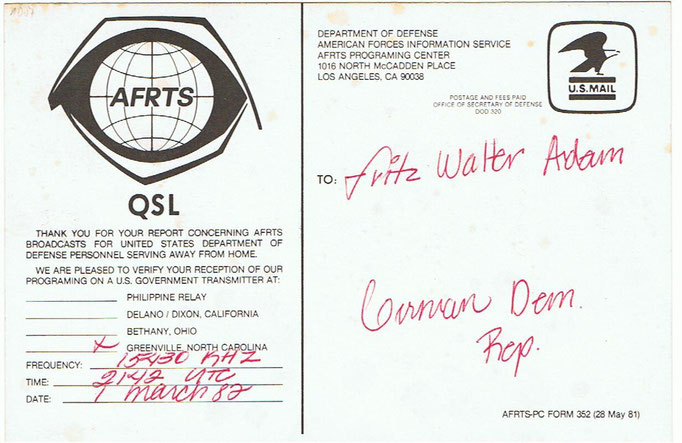 AFRTS
QSL
THANK YOU FOR YOUR REPORT CONCERNING AFRTS
BROADCASTS FOR UNITED STATES DEPARTMENT OF
DEFENSE PERSONNEL SERVING AWAY FROM HOME.
WE ARE PLEASED TO VERIFY YOUR RECEPTION OF OUR
PROGRAMING ON A U.S. GOVERNMENT TRANSMITTER AT:
PHILIPPINE RELAY
DELANO / DIXON, CALIFORNIA
BETHANY, OHIO
x GREENVILLE, NORTH CAROLINA
FREQUENCY: 15430 KHZ
TIME: 2142 UTC
DATE: 1 March 82
DEPARTMENT OF DEFENSE
AMERICAN FORCES INFORMATION SERVICE
AFRTS PROGRAMING CENTER
1016 NORTH McCADDEN PLACE
LOS ANGELES, CA 90038
POSTAGE AND FEES PAID
OFFICE OF SECRETARY OF DEFENSE
DOD 320
U.S. MAIL
TO: Fritz Walter Adam
German Dem.
Rep.
AFRTS-PC FORM 352 (28 May 81)